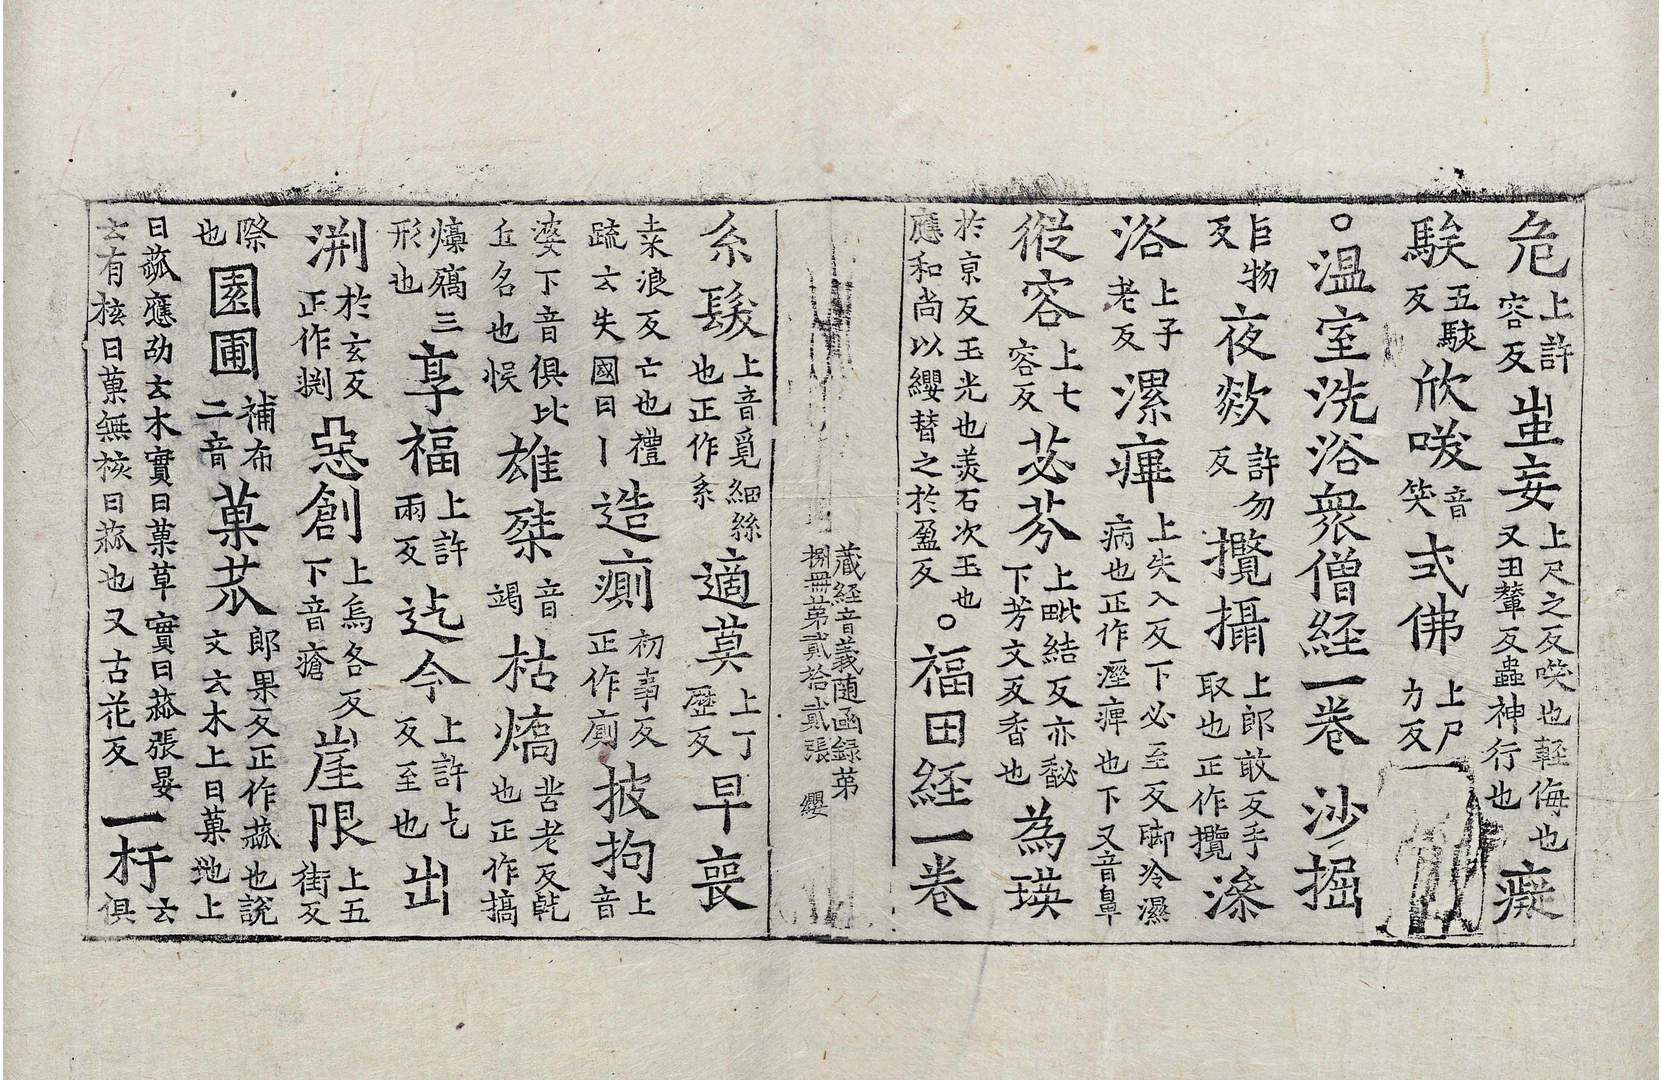 危上許容反蚩妄上尺之反㗛也輕侮也又田輦反蟲神行也癡
騃五駭反欣㗛音笑弍佛上尸力反
○温室洗浴衆僧經一卷 沙掘
巨物反夜欻許勿反攬攝上郎敢反手取也正作攬澡
浴上子老反漯痺上失入反下必至反脚冷濕病也正作溼痺也下又音鼻
從容上七容反容苾芬上毗結反亦馝下芳文反香也為瑛
於京反玉光也羙石次玉也應和尚以纓替之於盈反○福田經一卷
藏經音義随函録第捌冊第貳拾貳張 纓
糸髮上音覓細絲也正作糸適莫上丁歷反早喪
桒浪反亡也禮䟽云失國曰丨造廁初事反正作廁披拘上音
婆下音俱比丘名也悮雄桀音竭枯熇苦老反乹也正作槁
燺㱶三形也享福上許兩反迄今上許乞反至也出
渆於玄反正作渆惡創上烏各反下音瘡崖限上五街反
際也園圃補布反二音菓蓏郎果反正作蓏也說文云木上曰菓地上
曰蓏應劭云木實曰菓草實曰蓏張晏云有核曰菓無核曰蓏也又古花反一杅云俱